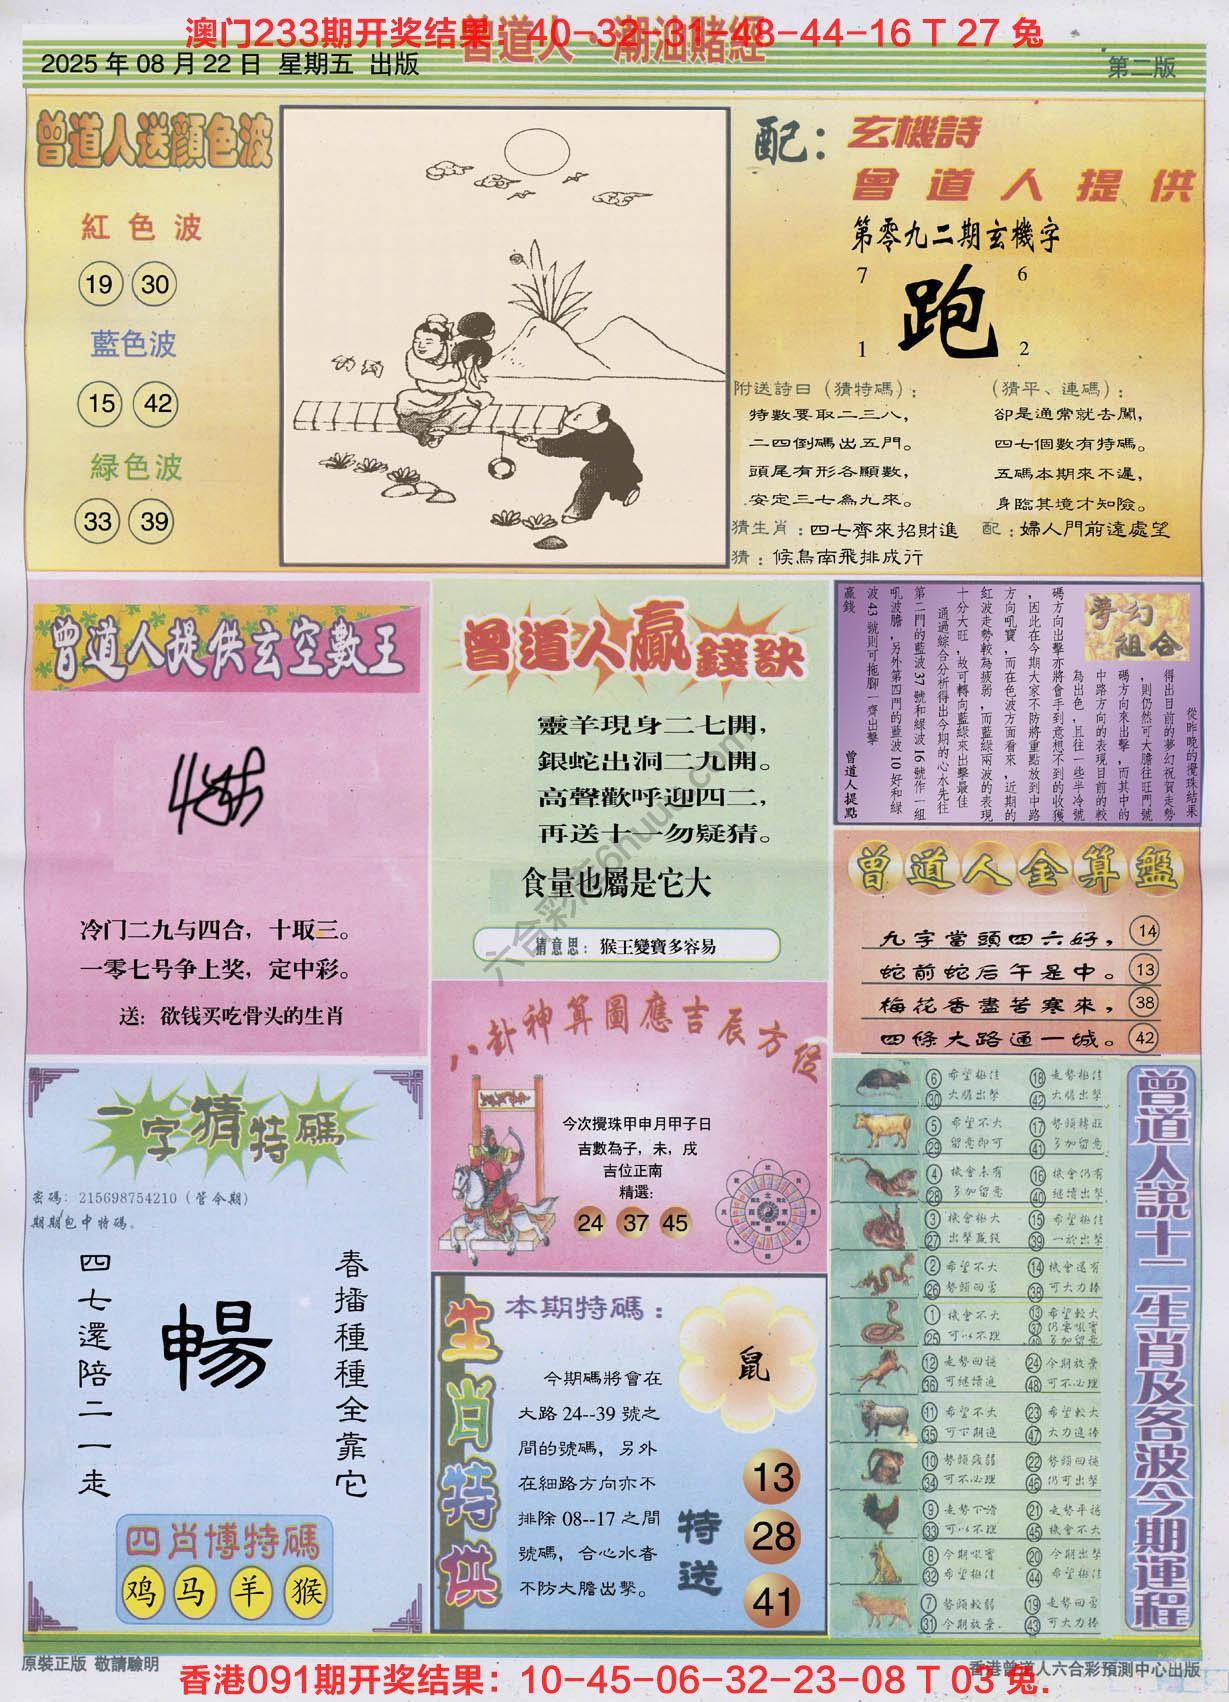 澳门233期开奖结果：40-32-31-48-44-16 T 27 兔
曾道人·潮汕賭經
2025 年 08 月 22 日 星期五 出版
第二版
曾道人送顏色波
紅色波
19 30
藍色波
15 42
綠色波
33 39
配：玄機詩
曾道人提供
第零九二期玄機字
7 6
跑
1 2
附送詩曰（猜特碼）：
特數要取二三八，
二四倒碼出五門。
頭尾有形各顯數，
安定三七為九來。
（猜平、連碼）：
卻是通常就去闖，
四七個數有特碼。
五碼本期來不遲，
身臨其境才知險。
猜生肖：四七齊來招財進 配：婦人門前遠處望
猜：候鳥南飛排成行
曾道人提供玄空數王
冷门二九与四合，十取三。
一零七号争上奖，定中彩。
送：欲钱买吃骨头的生肖
曾道人贏錢訣
靈羊現身二七開，
銀蛇出洞二九開。
高聲歡呼迎四二，
再送十一勿疑猜。
食量也屬是它大
猜意思：猴王變寶多容易
夢幻組合
從昨晚的攪珠結果
得出目前的夢幻祝賀走勢
，則仍然可大膽往旺門號
碼方向來出擊，而其中的
中路方向的表現目前的較
為出色，且往一些半冷號
碼方向出擊亦將會手到意想不到的收獲
，因此在今期大家不防將重點放到中路
方向吼寶，而在色波方面看來，近期的
紅波走勢較為疲弱，而藍綠兩波的表現
十分大旺，故可轉向藍綠來出擊最佳
通過綜合分析得出今期的心水先往
第二門的藍波37號和綠波16號作一組
吼波膽，另外第四門的藍波10好和綠
波43號則可拖腳一齊出擊
贏錢
曾道人提點
曾道人金算盤
九字當頭四六好，14
蛇前蛇后午是中。13
梅花香盡苦寒來，38
四條大路通一城。42
一字猜特碼
密碼：215698754210（管今期）
期期包中特碼。
春播種種全靠它
暢
四七還陪二一走
四肖博特碼
鸡 马 羊 猴
八卦神算圖應吉辰方位
今次攪珠甲申月甲子日
吉數為子，未，戌
吉位正南
精選：
24 37 45
生肖特供
本期特碼：
鼠
今期碼將會在
大路 24--39 號之
間的號碼，另外
在細路方向亦不
排除 08--17 之間
號碼，合心水者
不防大膽出擊。
特送
13
28
41
曾道人説十二生肖及各波今期運程
6 希望極佳 18 走勢極佳
30 大膽出擊 42 大膽出擊
5 希望不大 17 勢頭轉旺
29 留意即可 41 多加留意
4 機會未有 16 機會仍有
28 多加留意 40 繼續出擊
3 機會極大 15 希望極佳
27 出擊贏錢 39 一於出擊
2 希望不大 14 機會還有
26 勢頭回雲 38 可大力捧
1 機會不大 13 希望較大
25 可以不理 37 仍要吼實
多加留意
12 走勢回穩 24 今期放棄
36 可繼續追 48 可不必理
11 希望不大 23 希望較大
35 可下期追 47 大力追捧
10 勢頭淺弱 22 勢頭回穩
34 可不必理 46 仍可出擊
9 走勢下滑 21 走勢平穩
33 可以不理 45 機會不大
8 今期吼實 20 今期出擊
32 希望極佳 44 希望極佳
7 勢頭較弱 19 走勢回雲
31 今期放棄 43 可大力捧
原裝正版 敬請驗明
香港曾道人六合彩預測中心出版
香港091期开奖结果：10-45-06-32-23-08 T 03 兔.